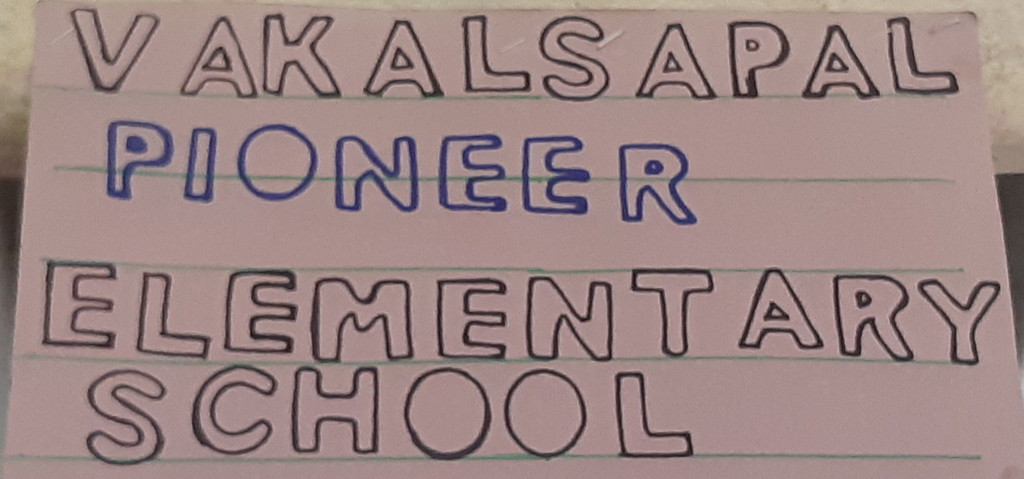 VAKALSAPAL
PIONEER
ELEMENTARY
SCHOOL